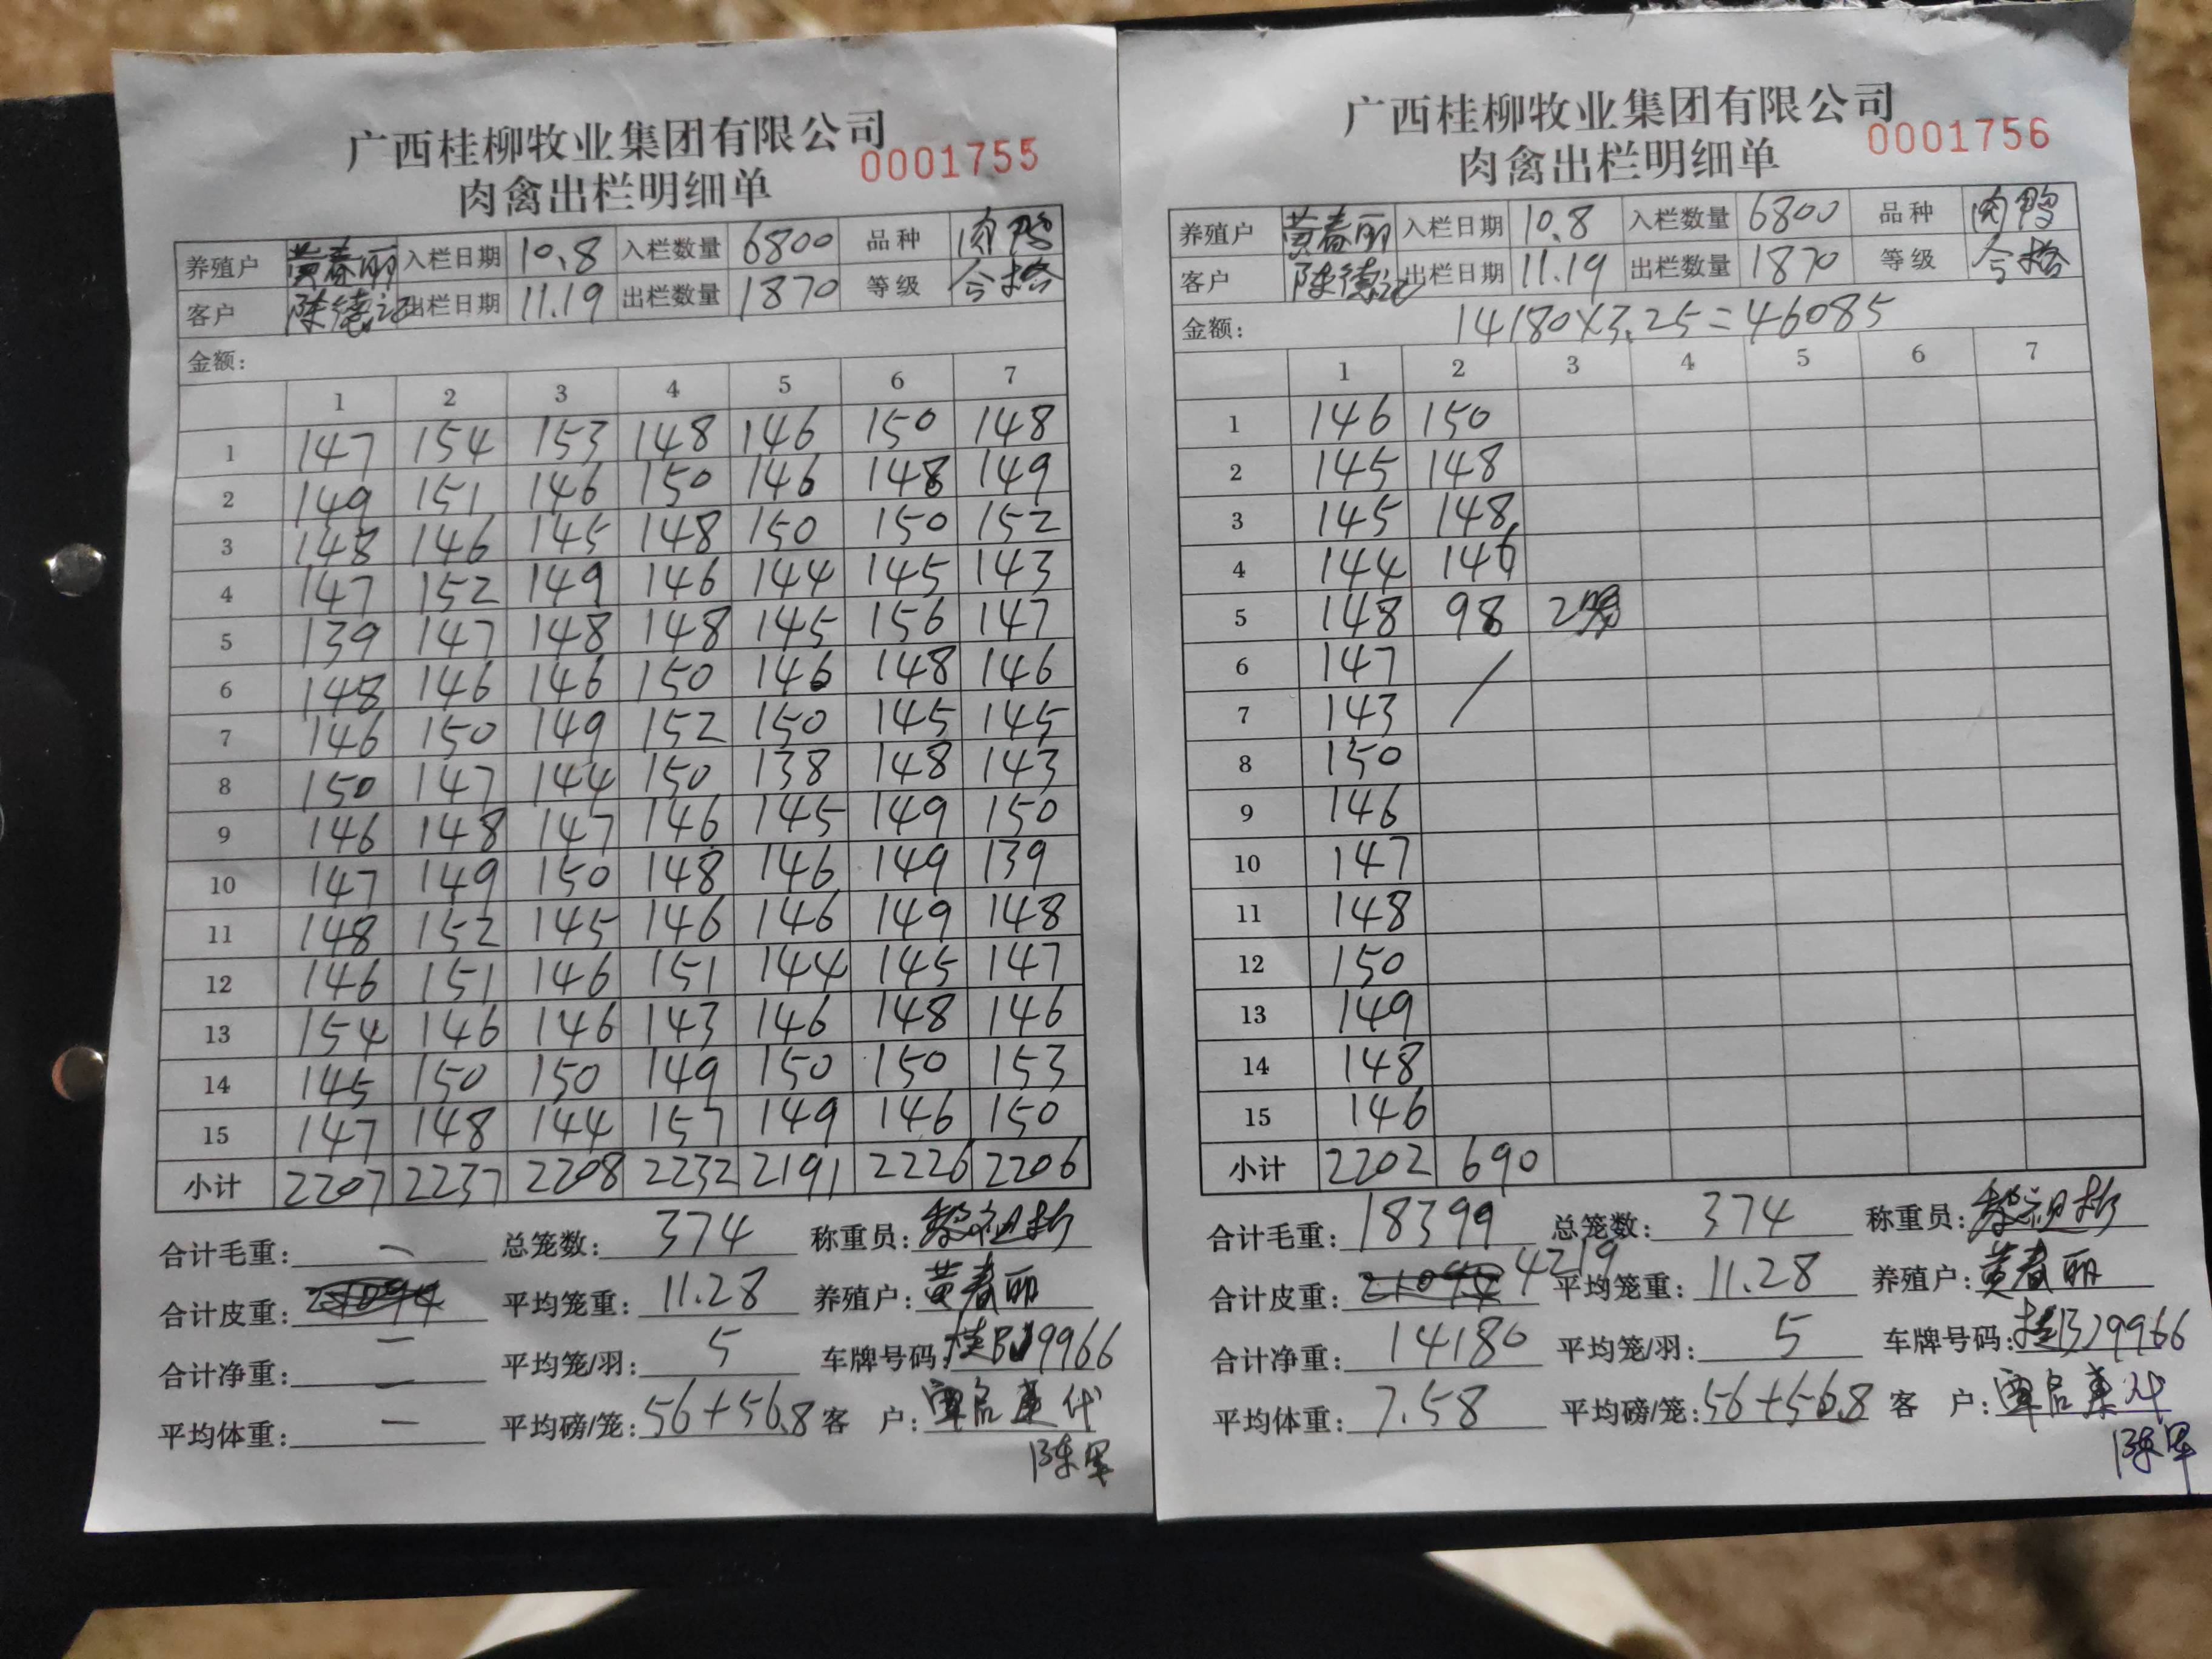 广西桂柳牧业集团有限公司
肉禽出栏明细单 0001755
养殖户 黄春丽 入栏日期 10.8 入栏数量 6800 品种 肉鸭
客户 陈德记 出栏日期 11.19 出栏数量 1870 等级 合格
金额:
1 2 3 4 5 6 7
1 147 154 153 148 146 150 148
2 149 151 146 150 146 148 149
3 148 146 145 148 150 150 152
4 147 152 149 146 144 145 143
5 139 147 148 148 145 156 147
6 148 146 146 150 146 148 146
7 146 150 149 152 150 145 145
8 150 147 144 150 138 148 143
9 146 148 147 146 145 149 150
10 147 149 150 148 146 149 139
11 148 152 145 146 146 149 148
12 146 151 146 151 144 145 147
13 154 146 146 143 146 148 146
14 145 150 150 149 150 150 153
15 147 148 144 157 149 146 150
小计 2207 2237 2208 2232 2191 2226 2206
合计毛重: — 总笼数: 374 称重员:
合计皮重: — 平均笼重: 11.28 养殖户: 黄春丽
合计净重: — 平均笼/羽: 5 车牌号码: 桂BJ9966
平均体重: — 平均磅/笼: 56+56.8 客 户: 代
陈军
广西桂柳牧业集团有限公司
肉禽出栏明细单 0001756
养殖户 黄春丽 入栏日期 10.8 入栏数量 6800 品种 肉鸭
客户 陈德记 出栏日期 11.19 出栏数量 1870 等级 合格
金额: 14180×3.25=46085
1 2 3 4 5 6 7
1 146 150
2 145 148
3 145 148
4 144 146
5 148 98 2
6 147 /
7 143
8 150
9 146
10 147
11 148
12 150
13 149
14 148
15 146
小计 2202 690
合计毛重: 18399 总笼数: 374 称重员:
合计皮重: 4219 平均笼重: 11.28 养殖户: 黄春丽
合计净重: 14180 平均笼/羽: 5 车牌号码: 桂BJ9966
平均体重: 7.58 平均磅/笼: 56+56.8 客 户: 代
陈军